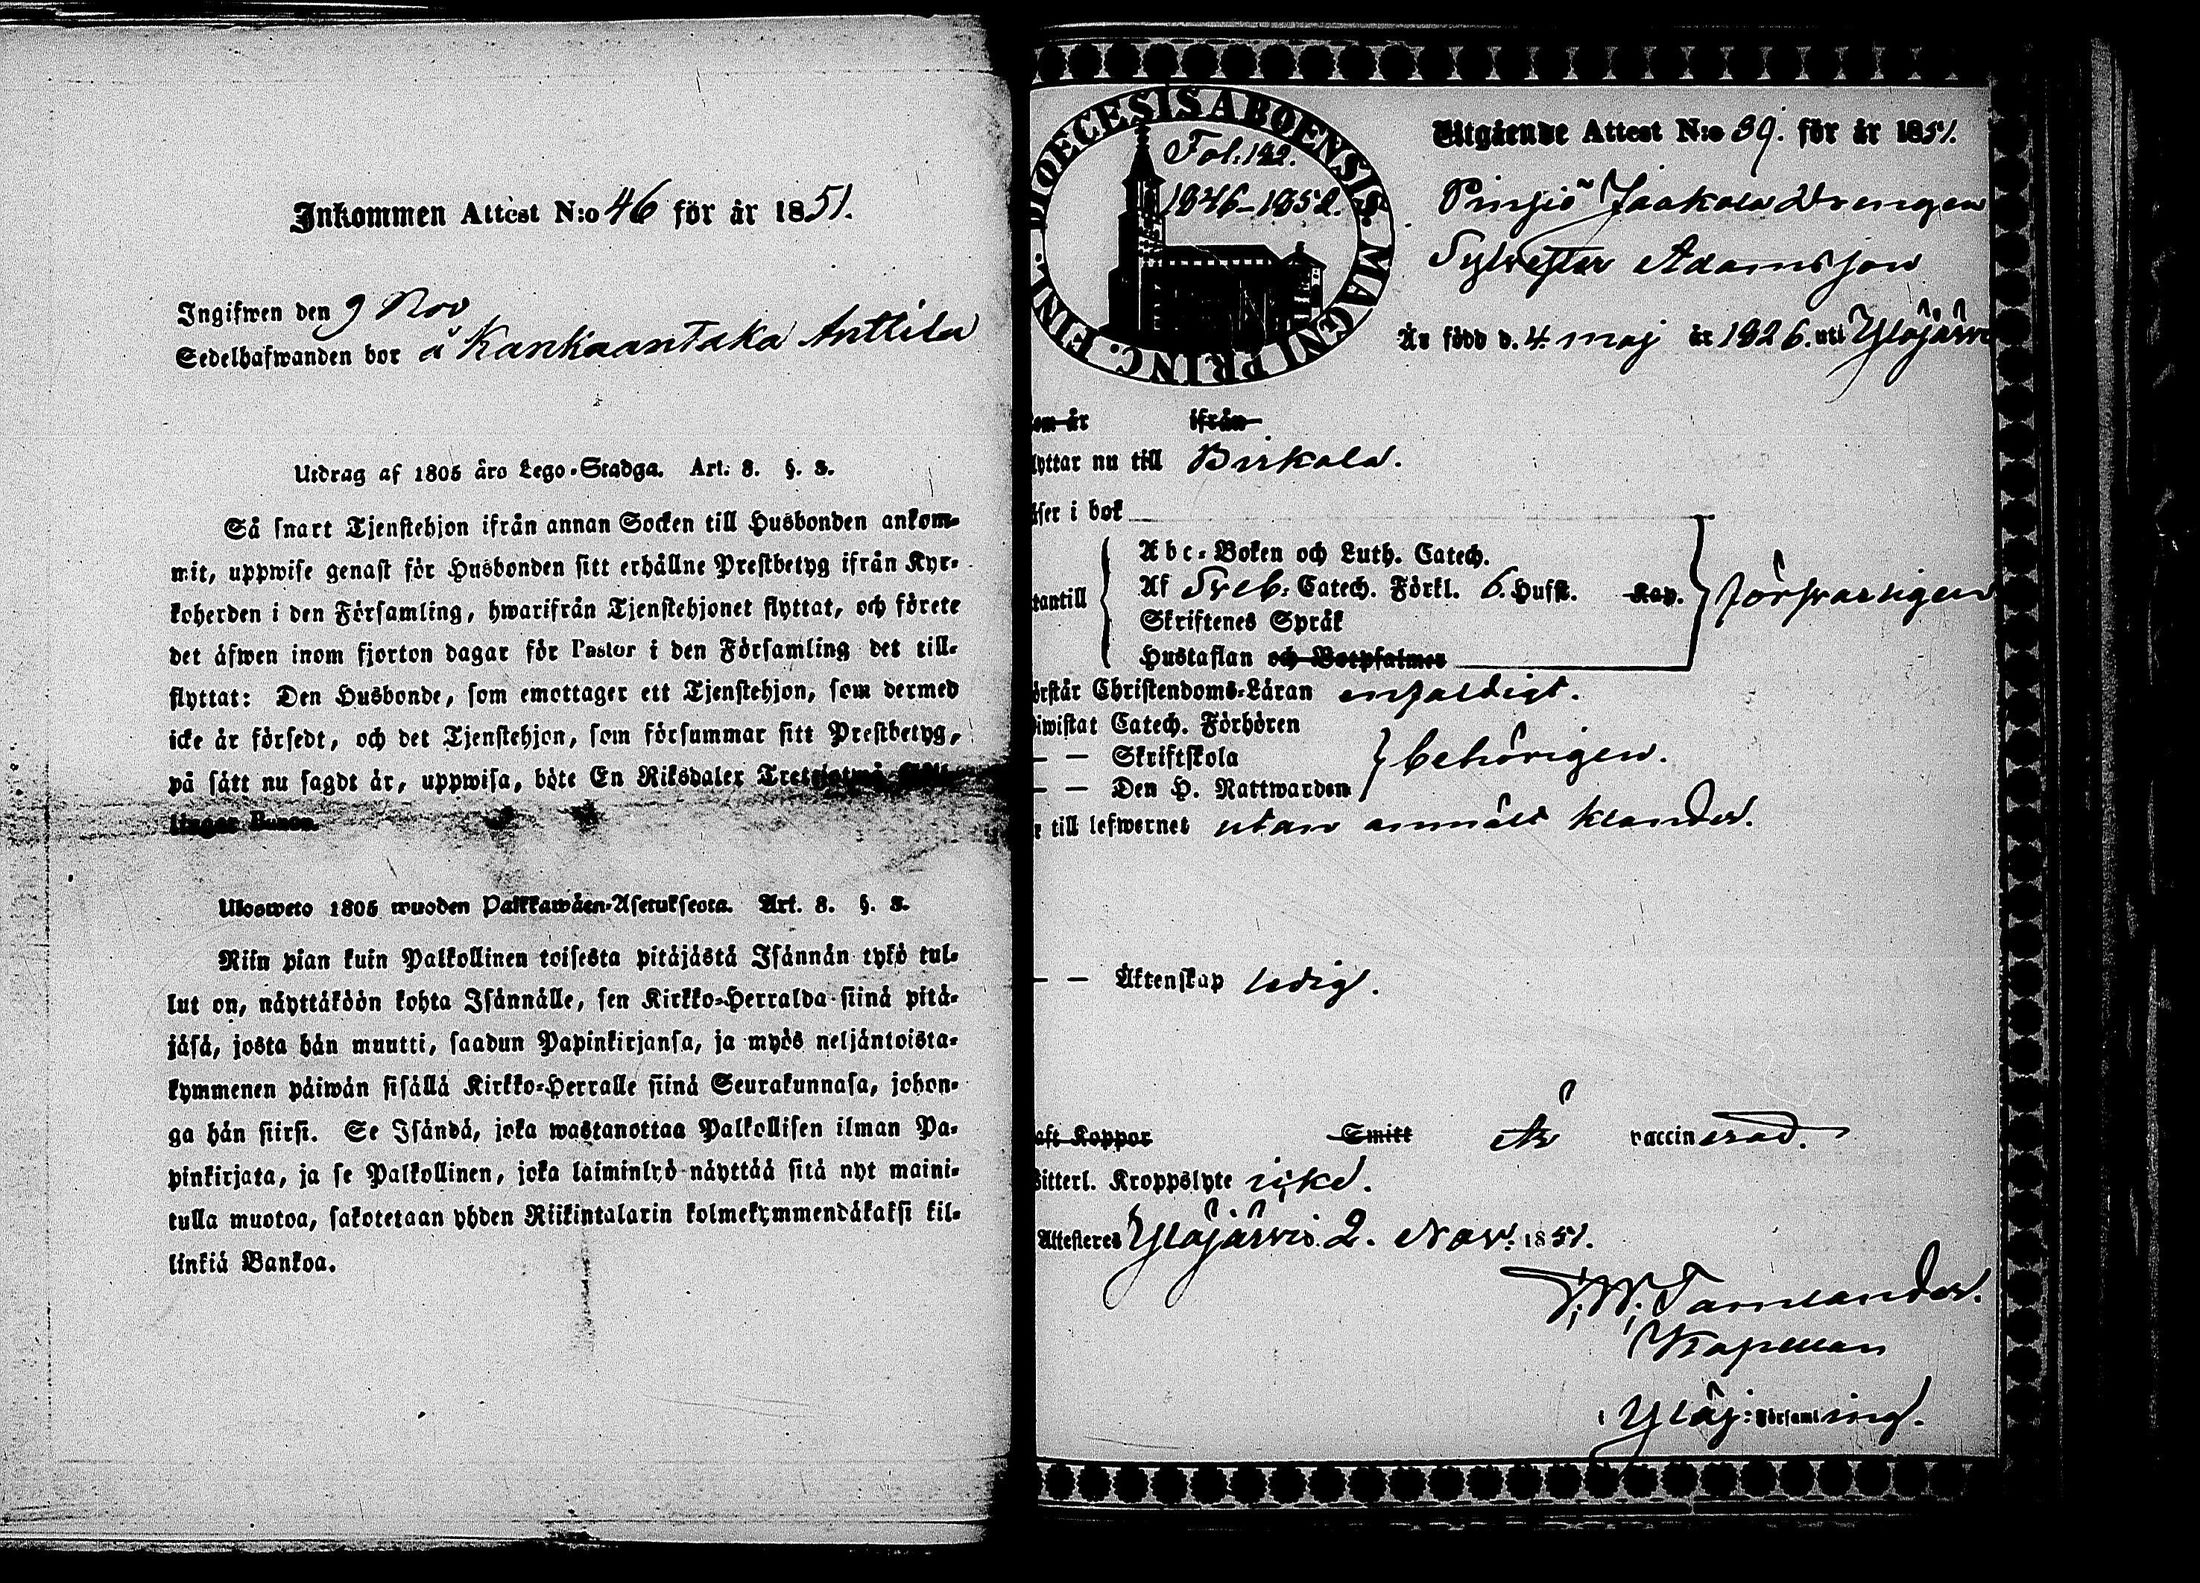 Inkommen Attest N:o 46 för år 1851.
Ingifwen den 9 Nov
Sedelhafwanden bor å Kankaantaka Anttila
Utdrag af 1805 års Lego-Stadga. Art. 8. §. 3.
Så snart Tjenstehjon ifrån annan Socken till Husbonden ankom-
mit, uppwise genast för Husbonden sitt erhållne Prestbetyg ifrån Kyr-
koherden i den Församling, hwarifrån Tjenstehjonet flyttat, och förete
det äfwen inom fjorton dagar för Pastor i den Församling det till-
flyttat: Den Husbonde, som emottager ett Tjenstehjon, som dermed
icke är försedt, och det Tjenstehjon, som försummar sitt Prestbetyg,
på sätt nu sagdt är, uppwisa, böte En Riksdaler
lingar Banco.
Ulosweto 1805 wuoden Palkkawäen-Asetuksesta. Art. 8. §. 3.
Niin pian kuin Palkollinen toisesta pitäjästä Isännän tykö tul-
lut on, näyttäköön kohta Isännälle, sen Kirkko-Herralda siinä pitä-
jäsä, josta hän muutti, saadun Papinkirjansa, ja myös neljäntoista-
kymmenen päiwän sisällä Kirkko-Herralle siinä Seurakunnasa, johon-
ga hän siirsi. Se Isändä, joka wastanottaa Palkollisen ilman Pa-
pinkirjata, ja se Palkollinen, joka laiminlyö näyttää sitä nyt maini-
tulla muotoa, sakotetaan yhden Riikintalarin kolmekymmendäkaksi kil-
linkiä Bankoa.
DIOECESIS ABOENSIS. MAGNI PRINC. FINL.
Fol: 142.
1846-1852.
Utgående Attest N:o 39. för år 1851.
Pinsiö Jaakola Drengen
Sylvester Adamsson
Är född d. 4. maj år 1826. uti Ylöjärvi
om år ifrån
lyttar nu till Birkala.
äser i bok
tantill
Abc-Boken och Luth. Catech.
Af Sveb: Catech. Förkl. 6. Hufst. Kap.
Skriftenes Språk
Hustaflan och Botpsalmer
försvarligen
örstår Christendoms-Läran enfaldigt.
iwistat Catech. Förhören
— — Skriftskola
— — Den H. Nattwarden
behörigen.
r till lefwernet utan anmäldt klander.
— — Äktenskap ledig.
aft Koppor Smitt Är vaccinerad.
Witterl. Kroppslyte icke.
Attesteres Ylöjärvi d. 2. Nov. 1851.
Kapellan
i Ylöj: Församling.